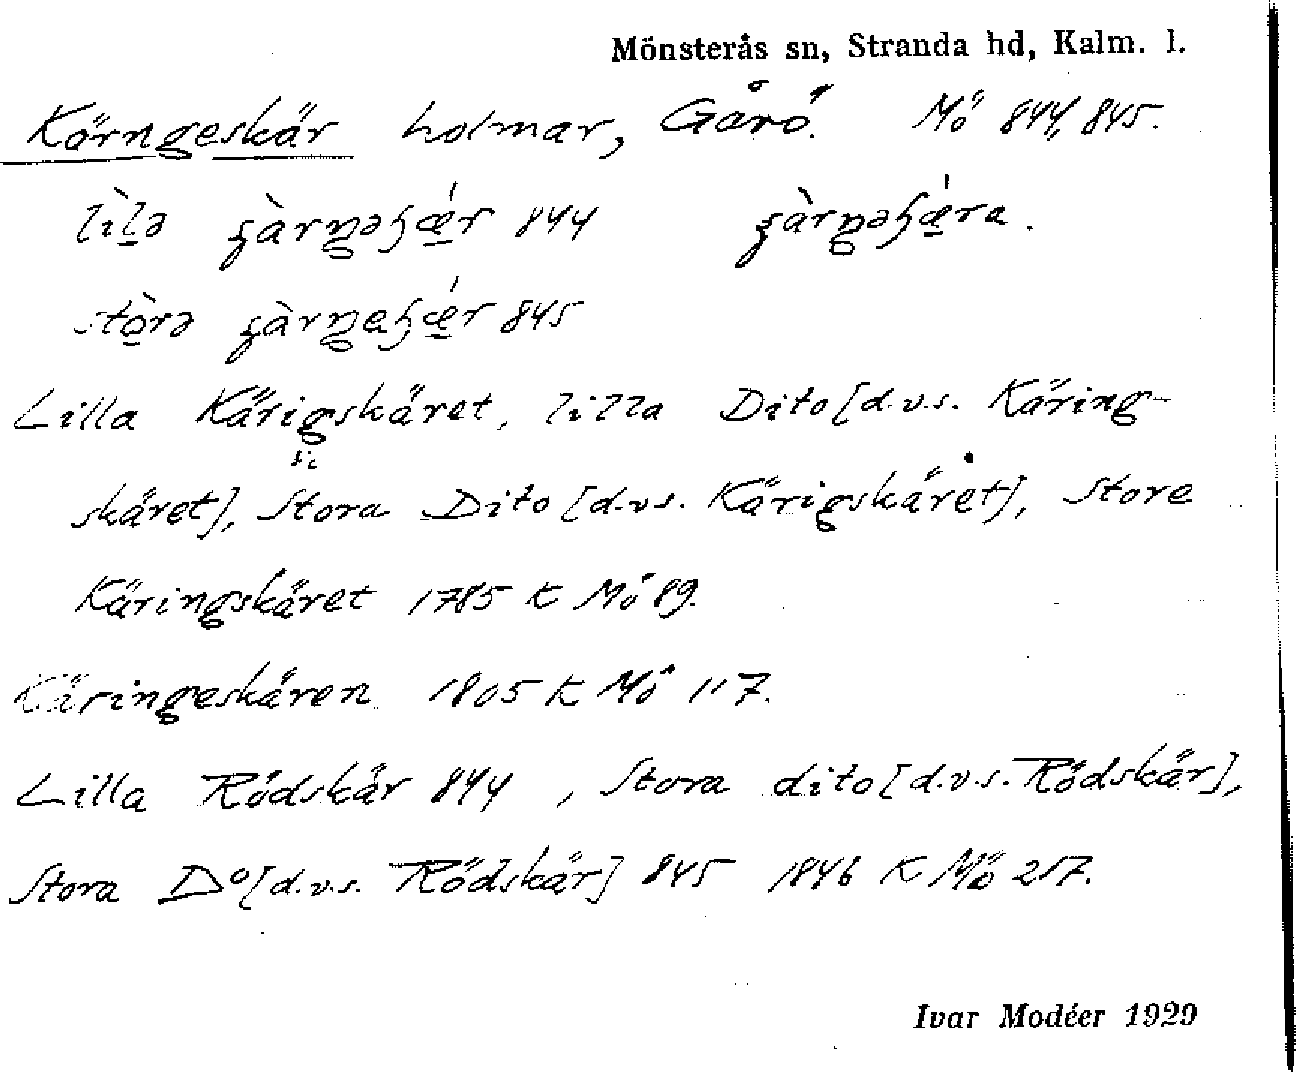 Mönsterås sn, Stranda hd, Kalm. l.
Kärngeskär holmar, Gårö. Mö 844, 845.
844
845
Lilla Kärigskäret, lilla Dito [d.v.s. Käring-
sic
skäret], Stora Dito [d.v.s. Kärigskäret], Store
Käringskäret 1785 K Mö 89.
Käringeskären 1805 K Mö 117.
Lilla Rödskär 844, Stora dito [d.v.s. Rödskär],
Stora Do [d.v.s. Rödskär] 845 1846 K Mö 257.
Ivar Modéer 1929